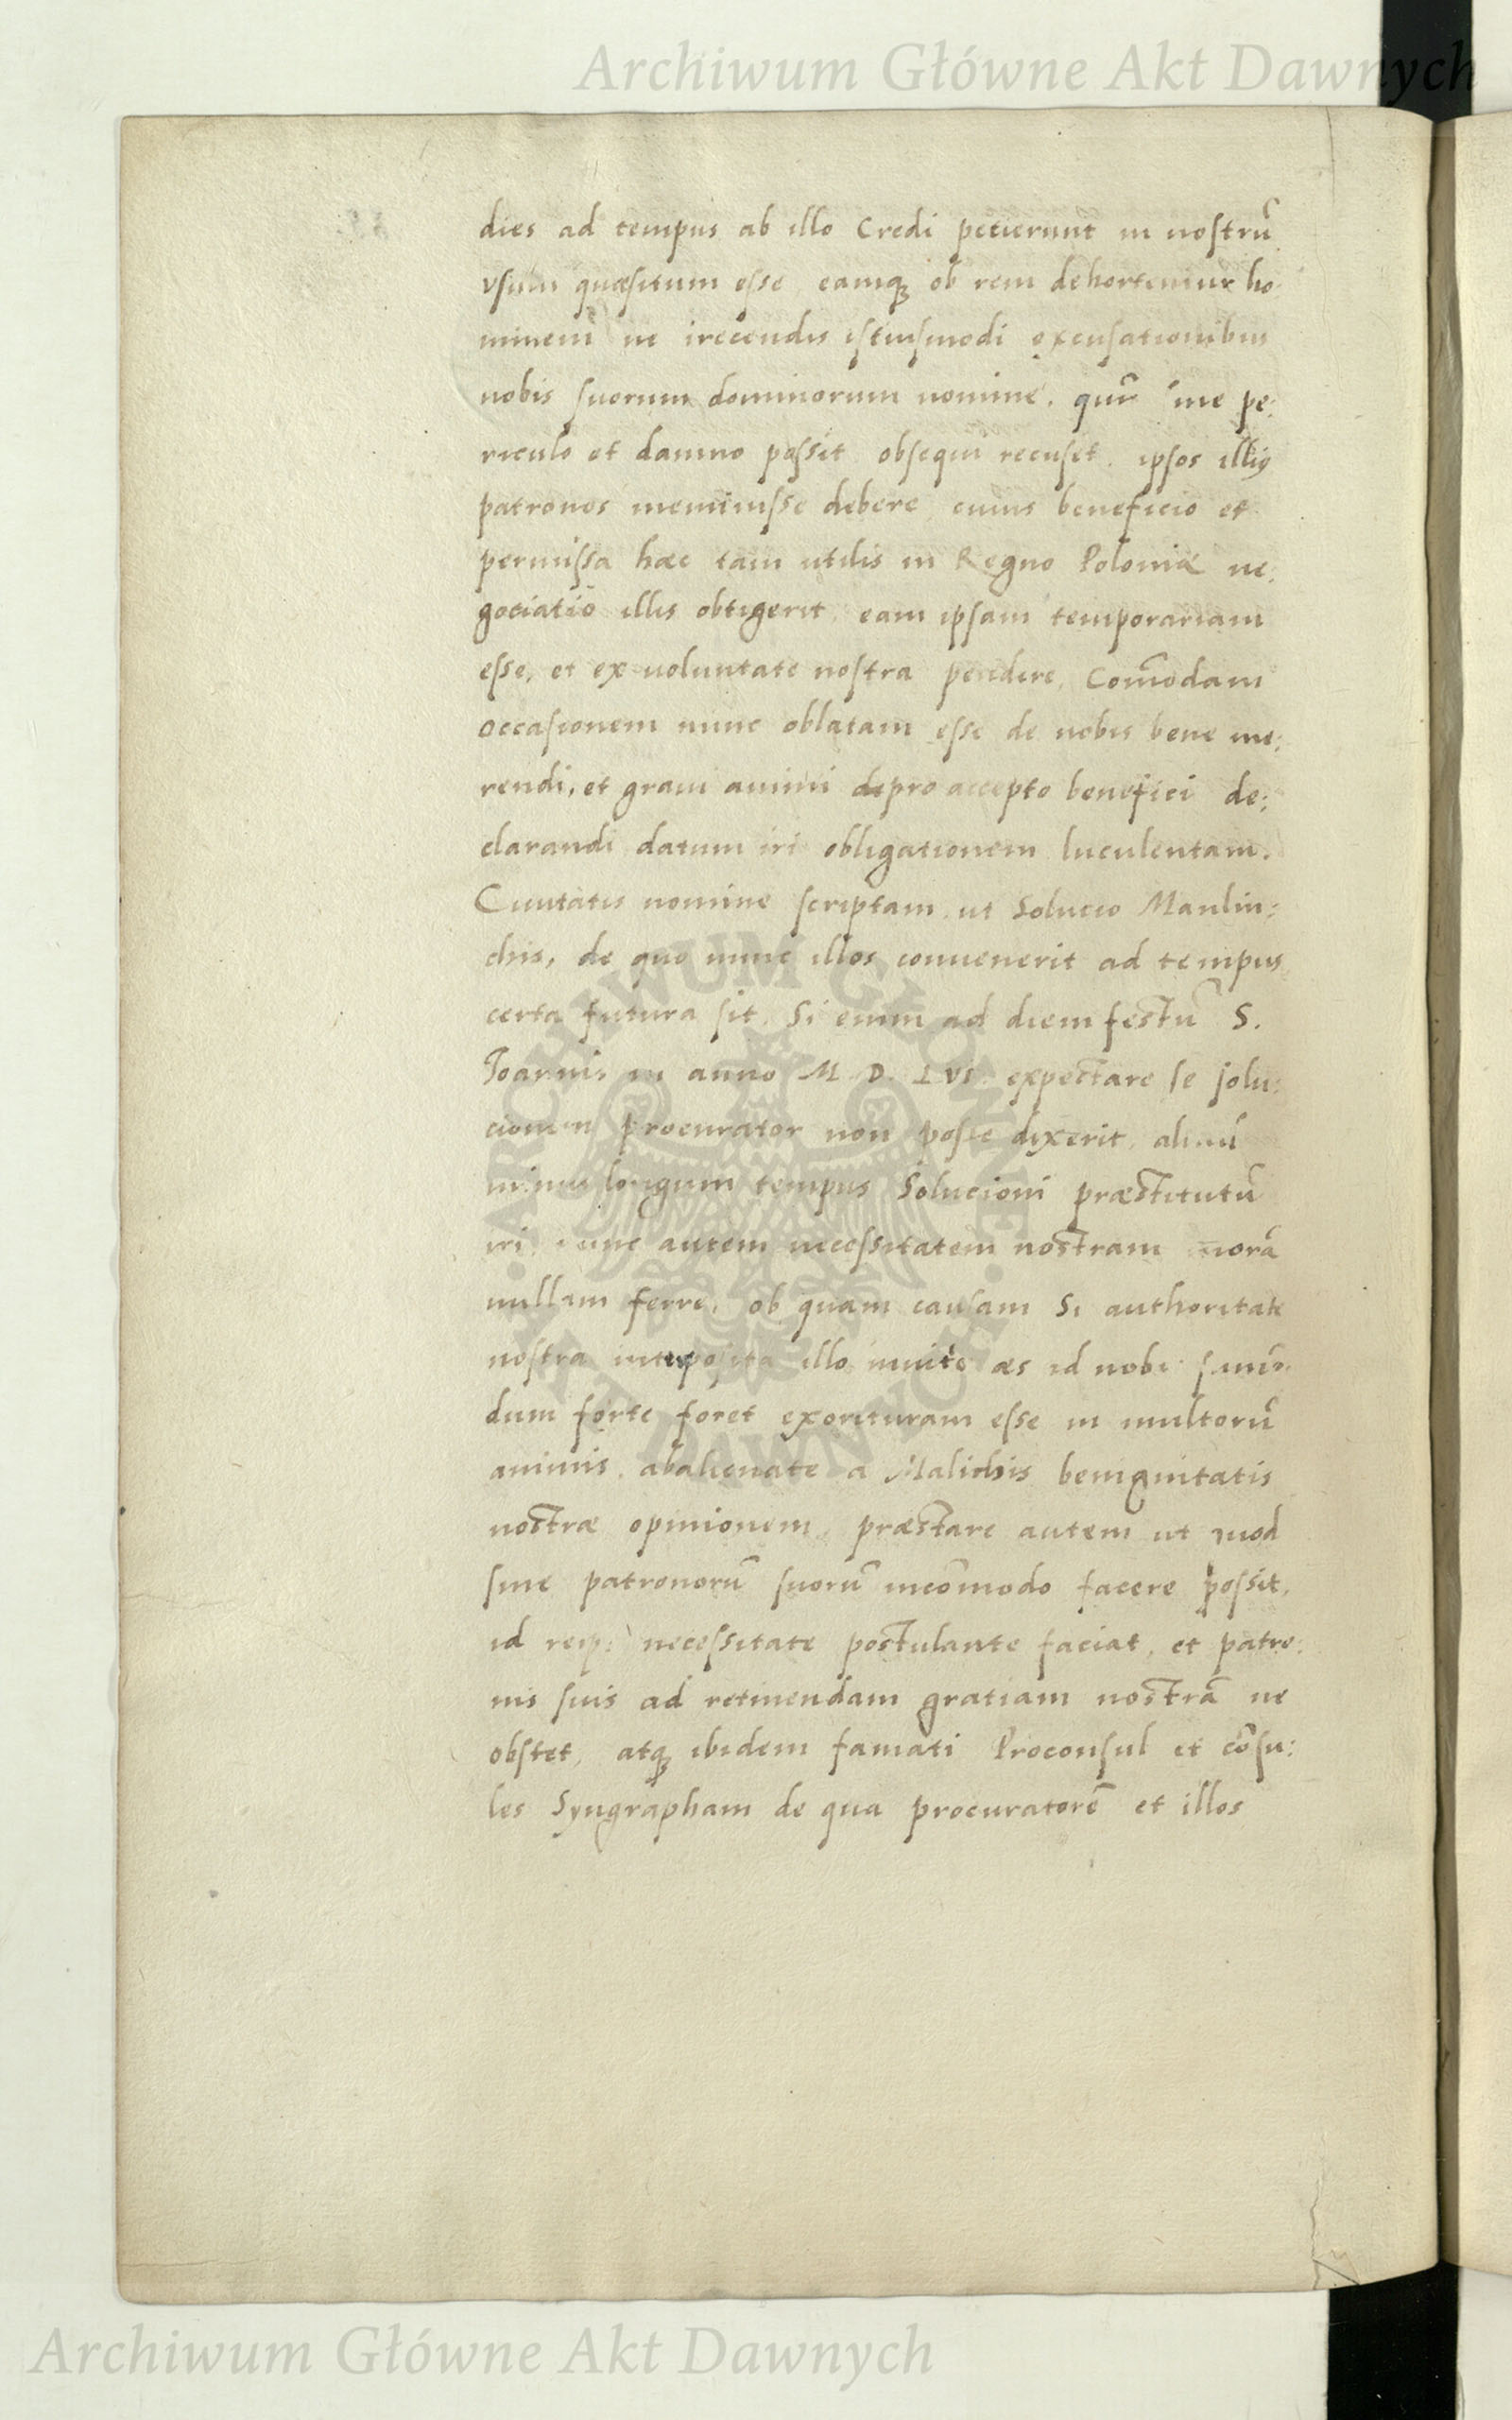 Archiwum Główne Akt Dawnych
dies ad tempus ab illo Credi petierunt in nostrū
vsum quæsitum esse, eamq; ob rem dehortemur ho:
minem ne irecendis istiusmodi excusationibus
nobis suorum dominorum nomine. qur̄ sine pe:
riculo et damno possit obsequi recuset. ipsos illiq
patronos meminisse debere cuius beneficio et
permissa hæc tam utilis in Regno Poloniæ ne:
gociatio illis obtigerit, eam ipsam temporariam
esse, et ex voluntate nostra pendere, Com̄odam
occasionem nunc oblatam esse de nobis bene me:
rendi, et grati animi pro accepto benefici de:
clarandi datum iri obligationem luculentam.
Ciuitatis nomine scriptam ut Solucio Manlin:
chis, de quo nunc illos conuenerit ad tempus
certa futura sit. Si enim ad diem festū S.
Joannis in anno M. D. LVI. expectare se solu:
cionem procurator non posse dixerit,
minus longum tempus Solucioni præstitutū
iri, nunc autem necessitatem nostram morā
nullam ferre, ob quam causam Si authoritate
nostra interposita illo inuito æs id nobis
dum forte foret exorituram esse in multorū
animis abalienate a Malichis benignitatis
nostræ opinionem, præstare autem ut quod
sine patronorū suorū incōmodo facere possit,
id reip: necessitate postulante faciat, et patro:
nis suis ad retinendam gratiam nostrā ne
obstet, atq; ibidem famati Proconsul et cōsu:
les Syngrapham de qua procuratorē et illos
ARCHIWUM GŁÓWNE AKT DAWNYCH
Archiwum Główne Akt Dawnych